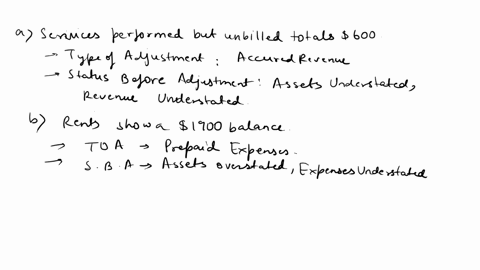 a) Services performed but unbilled totals $600
→ Type of Adjustment : Accured Revenue
→ Status Before Adjustment : Assets Understated,
Revenue Understated.
b) Rents show a $1900 balance.
→ TOA → Prepaid Expenses.
→ S.B.A → Assets overstated, Expenses Understated